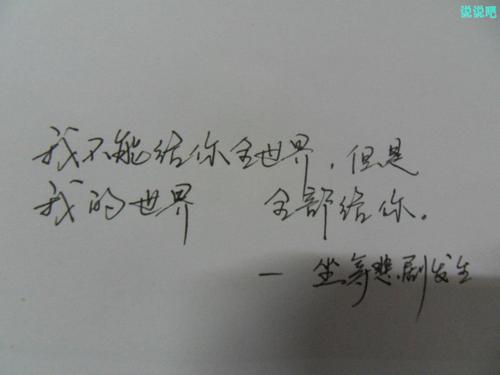 说说吧
我不能给你全世界，但是
我的世界 全部给你。
— 坐等悲剧发生